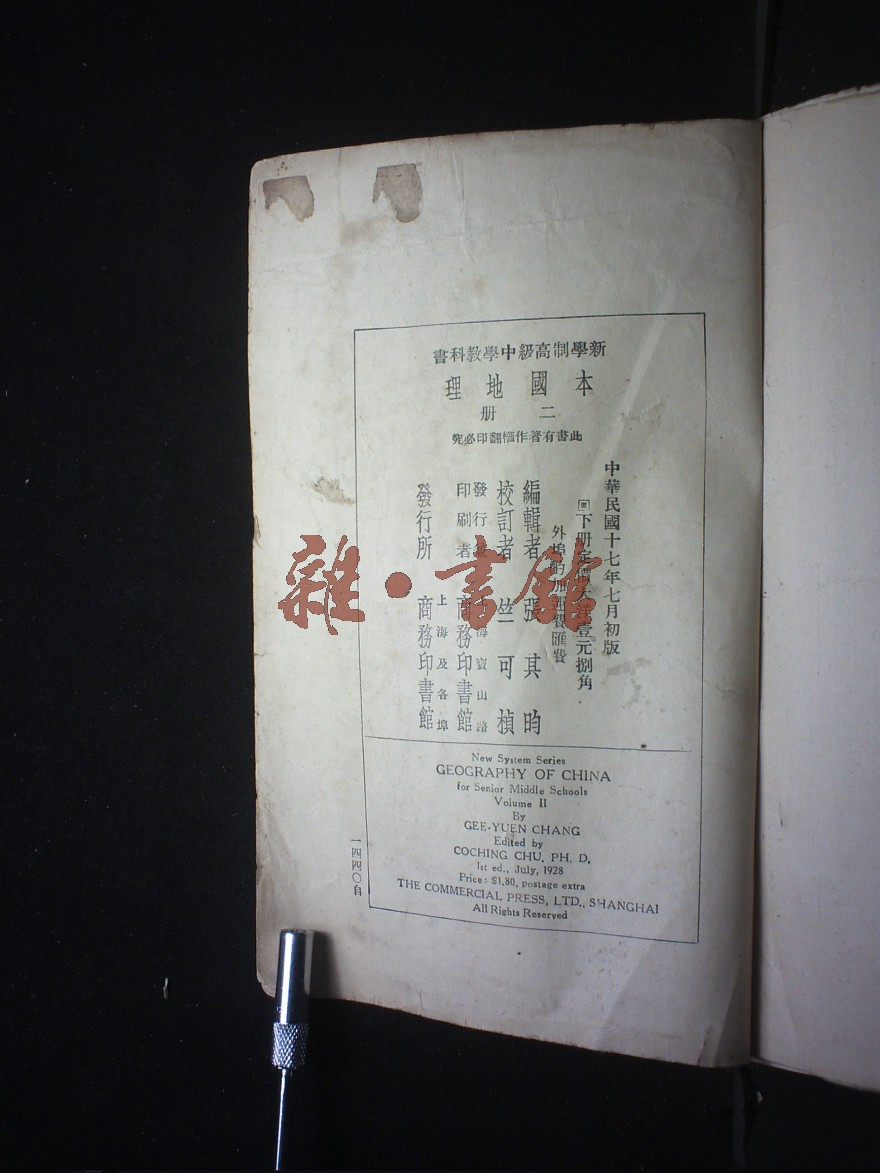 新學制高級中學教科書
本國地理
二册
此書有著作權翻印必究
中華民國十七年七月初版
下册定價大洋壹元捌角
外埠酌加運費匯費
編輯者 張其昀
校訂者 竺可楨
發行兼印刷者 上海寶山路 商務印書館
發行所 上海及各埠 商務印書館
New System Series
GEOGRAPHY OF CHINA
for Senior Middle Schools
Volume II
By
GEE-YUEN CHANG
Edited by
COCHING CHU, PH. D.
1st ed., July, 1928
Price: $1.80, postage extra
THE COMMERCIAL PRESS, LTD., SHANGHAI
All Rights Reserved
一四四〇自
雜·書館